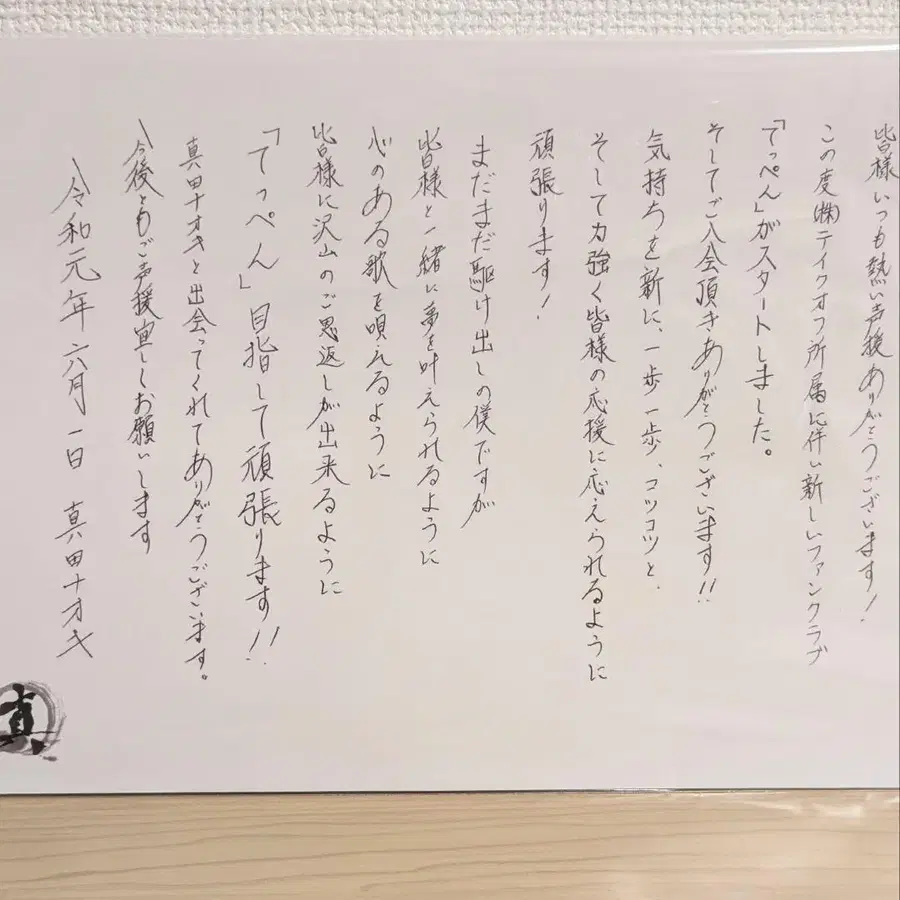 皆様いつも熱い声援ありがとうございます!
この度㈱テイクオフ所属に伴い新しいファンクラブ
「てっぺん」がスタートしました。
そしてご入会頂きありがとうございます!!
気持ちを新に、一歩一歩、コツコツと、
そして力強く皆様の応援に応えられるように
頑張ります!
まだまだ駆け出しの僕ですが
皆様と一緒に夢を叶えられるように
心のある歌を唄えるように
皆様に沢山のご恩返しが出来るように
「てっぺん」目指して頑張ります!!
真田ナオキと出会ってくれてありがとうございます。
今後ともご声援宜しくお願いします
令和元年六月一日 真田ナオキ
真